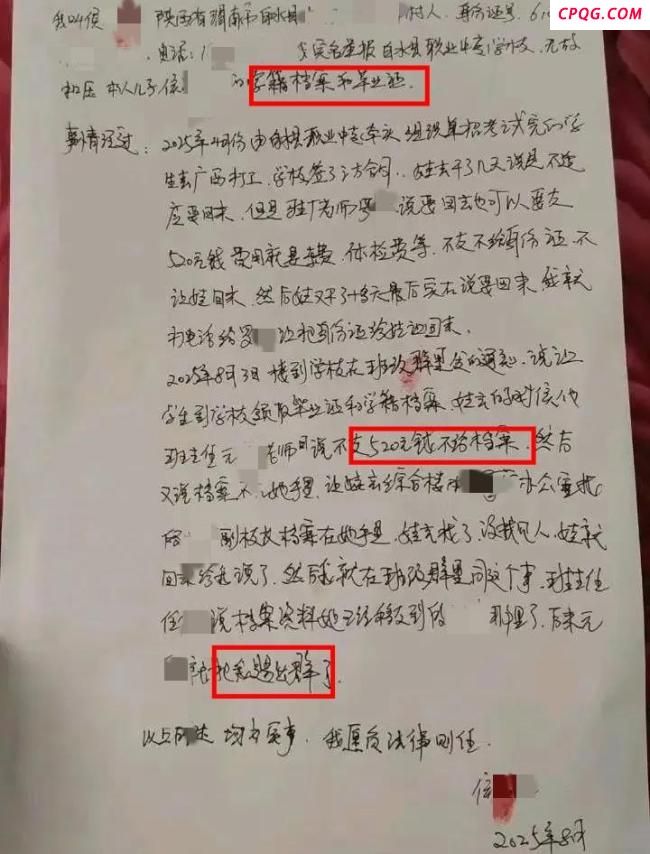 CPQG.COM
我叫侯 陕西省渭南市白水县 村人，身份证号，61
电话：1 实名举报白水县职业中专学校，无故
扣压本人儿子，侯 的学籍档案和毕业证.
事情经过：2025年4月份由白水县职业中专牵头组织单招考试完的学
生去广西打工，学校签了三方合同，娃去干了几天说是不适
应要回来，但是驻厂老师 说要回去也可以要交
520元钱费用就是车费，体检费等，不交不给身份证，不
让娃回来，然后娃又干了十多天最后实在说要回来，我就
打电话给 让把身份证给娃返回来.
2025年8月3日接到学校在班级群里发的通知，说让
学生到学校领取毕业证和学籍档案，娃去的时候他
班主任元 老师说不交520元钱不给档案，然后
又说档案不 她手里，让娃去综合楼 办公室找
的 副校长档案在她手里，娃去找了没找见人，娃就
回来给我说了，然后我就在班级群里问这个事，班主任
任 说档案资料她已经移交到的 那里了，后来元
把我踢出群了
以上所述 均为实事，我愿负法律责任.
侯
2025年8月